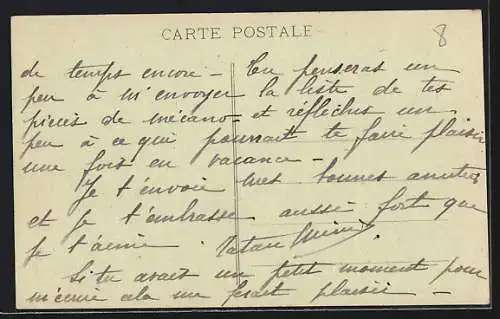 CARTE POSTALE
8
de temps encore – Tu penseras un
peu à m'envoyer la liste de tes
pièces de mécano et réfléchis un
peu à ce qui pourrait te faire plaisir
une fois en vacance –
Je t'envoie mes bonnes amitiés
et je t'embrasse aussi fort que
je t'aime.
Si tu avait un petit moment pour
m'écrire cela me ferait plaisir –